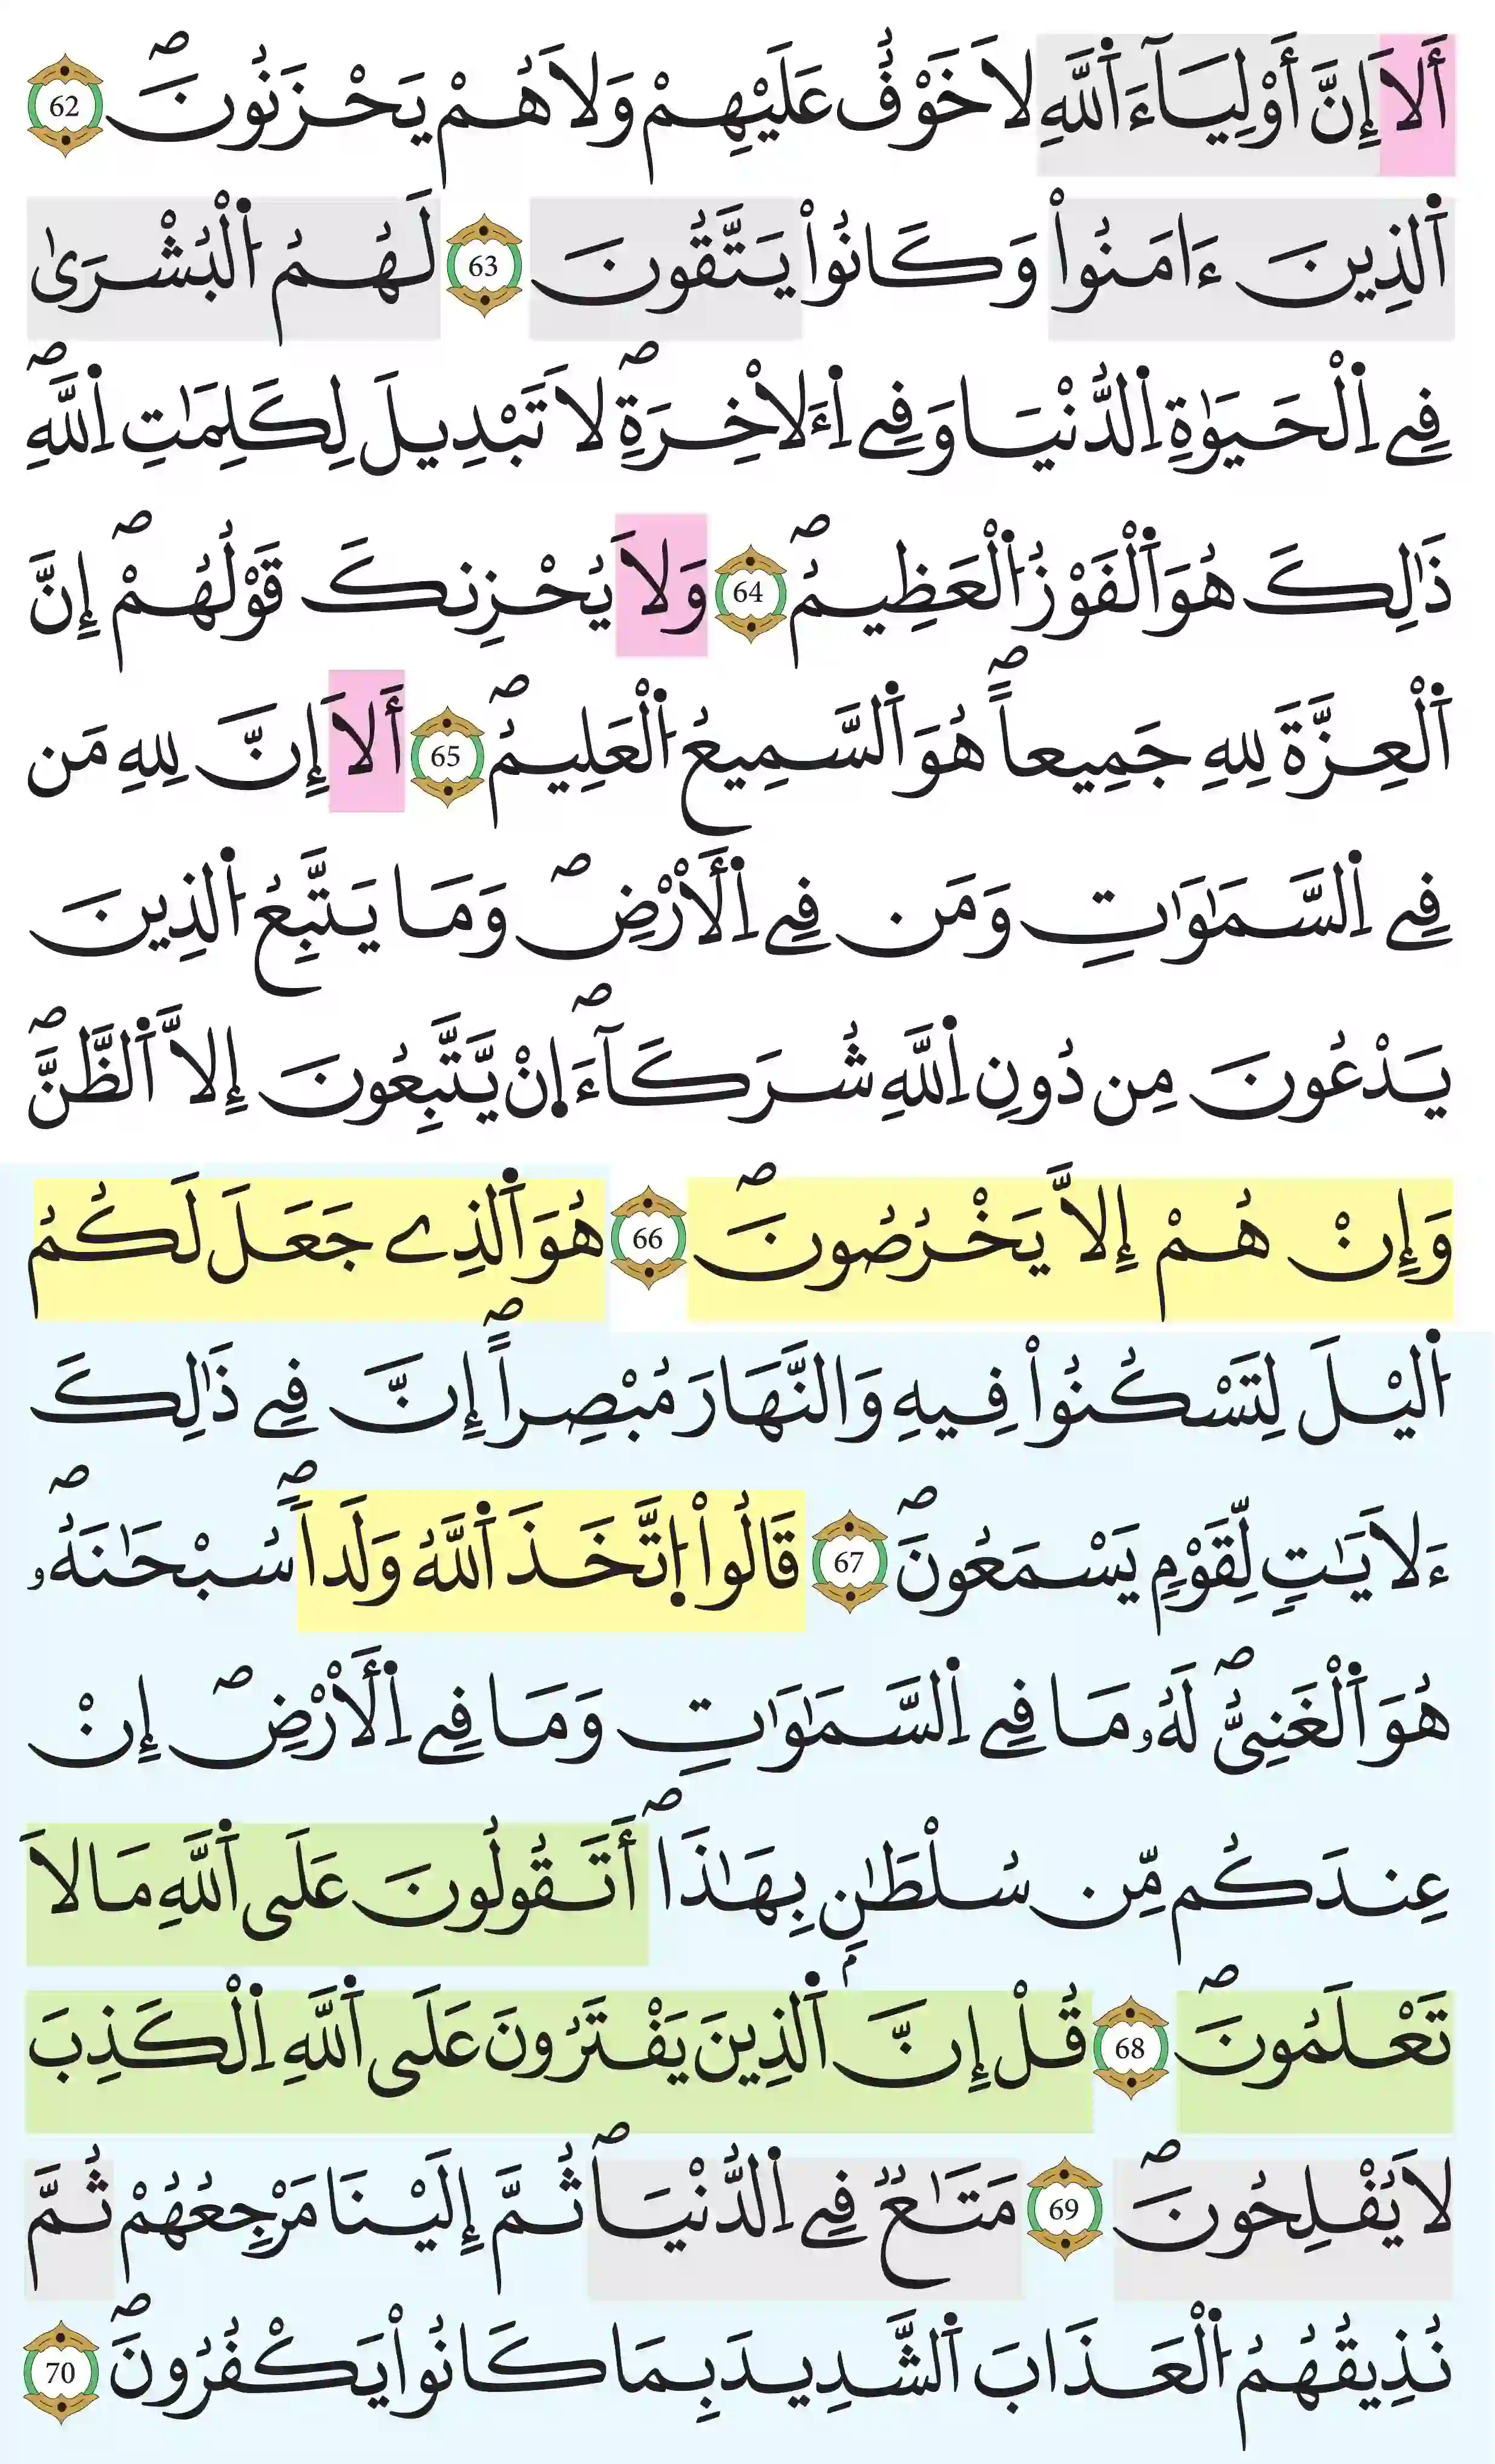 أَلَا إِنَّ أَوْلِيَآءَ اَ۬للَّهِ لَا خَوْفٌ عَلَيْهِمْ وَلَا هُمْ يَحْزَنُونَۖ 62
اَ۬لذِينَ ءَامَنُواْ وَكَانُواْ يَتَّقُونَ 63 لَهُمُ اُ۬لْبُشْر۪ىٰ
فِے اِ۬لْحَيَوٰةِ اِ۬لدُّنْيَا وَفِے اِ۬لَاخِرَةِۖ لَا تَبْدِيلَ لِكَلِمَٰتِ اِ۬للَّهِۖ
ذَٰلِكَ هُوَ اَ۬لْفَوْزُ اُ۬لْعَظِيمُۖ 64 وَلَا يُحْزِنكَ قَوْلُهُمْۖ إِنَّ
اَ۬لْعِزَّةَ لِلهِ جَمِيعاًۖ هُوَ اَ۬لسَّمِيعُ اُ۬لْعَلِيمُۖ 65 أَلَا إِنَّ لِلهِ مَن
فِے اِ۬لسَّمَٰوَٰتِ وَمَن فِے اِ۬لَارْضِۖ وَمَا يَتَّبِعُ اُ۬لذِينَ
يَدْعُونَ مِن دُونِ اِ۬للَّهِ شُرَكَآءَۖ اِنْ يَّتَّبِعُونَ إِلَّا اَ۬لظَّنَّۖ
وَإِنْ هُمْ إِلَّا يَخْرُصُونَۖ 66 هُوَ اَ۬لذِے جَعَلَ لَكُمُ
اُ۬ليْلَ لِتَسْكُنُواْ فِيهِ وَالنَّهَارَ مُبْصِراًۖ إِنَّ فِے ذَٰلِكَ
ءَلَايَٰتٍ لِّقَوْمٍ يَسْمَعُونَۖ 67 قَالُواْ اُ۪تَّخَذَ اَ۬للَّهُ وَلَداًۖ سُبْحَٰنَهُۥۖ
هُوَ اَ۬لْغَنِيُّۖ لَهُۥ مَا فِے اِ۬لسَّمَٰوَٰتِ وَمَا فِے اِ۬لَارْضِۖ إِنْ
عِندَكُم مِّن سُلْطَٰنِۢ بِهَٰذَاۖ أَتَقُولُونَ عَلَى اَ۬للَّهِ مَا لَا
تَعْلَمُونَۖ 68 قُلْ إِنَّ اَ۬لذِينَ يَفْتَرُونَ عَلَى اَ۬للَّهِ اِ۬لْكَذِبَ
لَا يُفْلِحُونَۖ 69 مَتَٰعٌ فِے اِ۬لدُّنْيَاۖ ثُمَّ إِلَيْنَا مَرْجِعُهُمْ ثُمَّ
نُذِيقُهُمُ اُ۬لْعَذَابَ اَ۬لشَّدِيدَ بِمَا كَانُواْ يَكْفُرُونَۖ 70